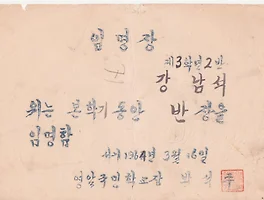 임명장
제3학년2반
강남석
위는 본학기 동안 반장을
임명함
서기 1964년 3월 16일
영악국민학교장